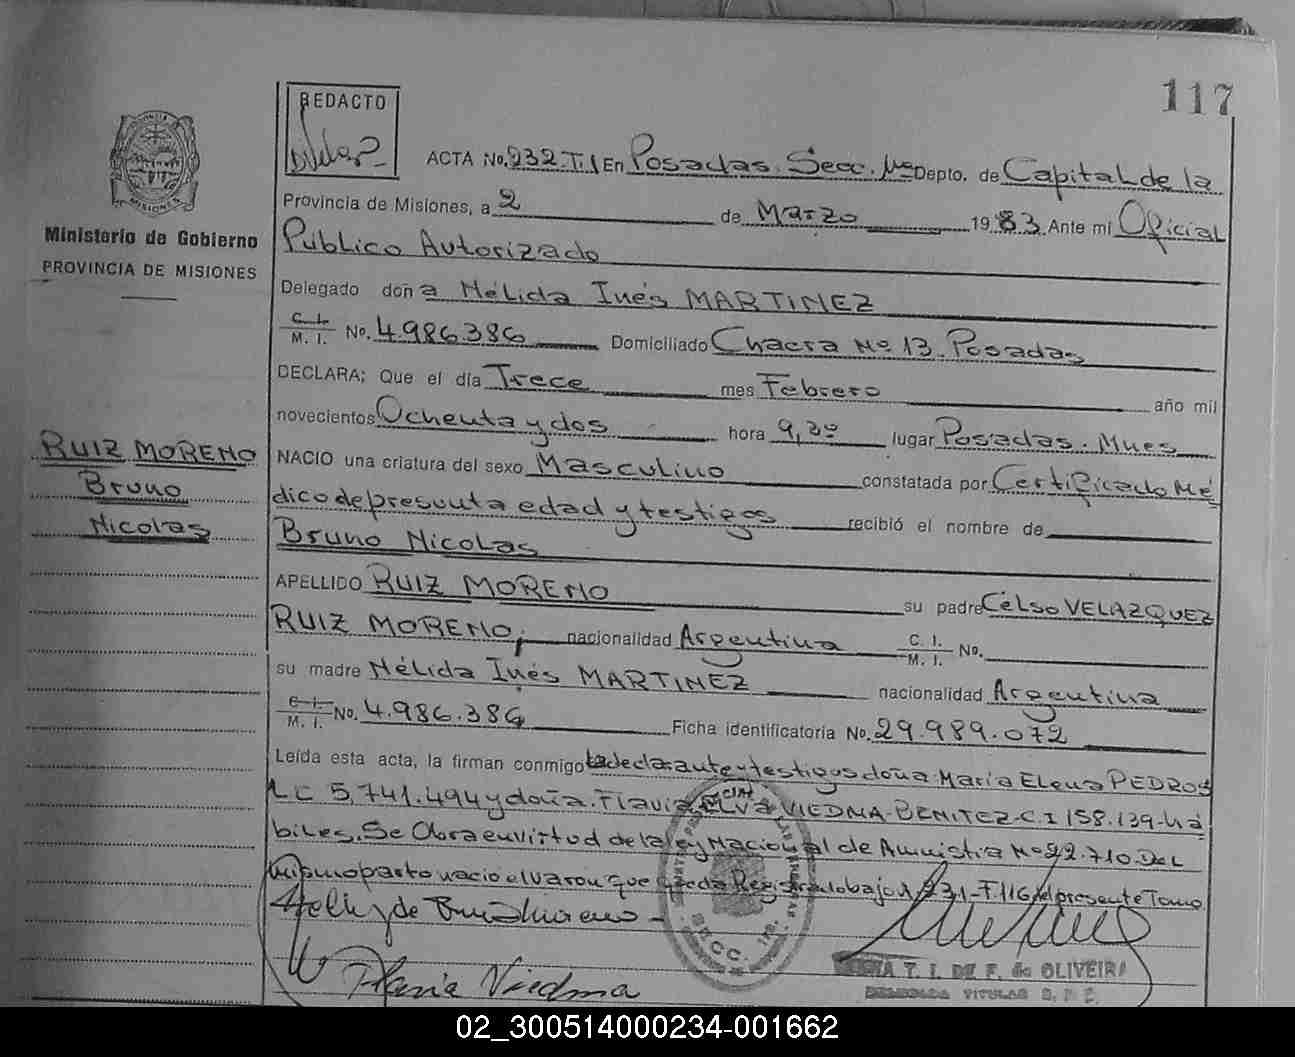 117
REDACTO
ACTA No. 232-T.I En Posadas. Secc. 1ra Depto. de Capital de la
Provincia de Misiones, a 2 de Marzo 1983 Ante mí Oficial
Público Autorizado
Ministerio de Gobierno
PROVINCIA DE MISIONES
Delegado doña Nélida Inés MARTINEZ
C. I.
M. I. No. 4.986.386 Domiciliado Chacra No 13. Posadas
DECLARA; Que el día Trece mes Febrero año mil
novecientos Ochenta y dos hora 9,30 lugar Posadas. Mnes
RUIZ MORENO
Bruno
Nicolas
NACIO una criatura del sexo Masculino constatada por Certificado Mé
dico de presunta edad y testigos recibió el nombre de
Bruno Nicolas
APELLIDO RUIZ MORENO su padre Celso VELAZQUEZ
RUIZ MORENO, nacionalidad Argentina C. I.
M. I. No.
su madre Nélida Inés MARTINEZ nacionalidad Argentina
C. I.
M. I. No. 4.986.386 Ficha identificatoria No. 29.989.072
Leída esta acta, la firman conmigo la declarante y testigos doña María Elena PEDROS
LC 5.741.494 y doña. Flavia ELVA VIEDMA-BENITEZ-C.I 158.139-há
biles. Se Obra en virtud de la ley Nacional de Amnistia No 22.710. Del
mismo parto nacio el varon que queda Registrado bajo A 231-F116 del presente Tomo
de Ruiz Moreno
Flavia Viedma
T. I. DE F. de OLIVEIRA
DELEGADA TITULAR
02_300514000234-001662